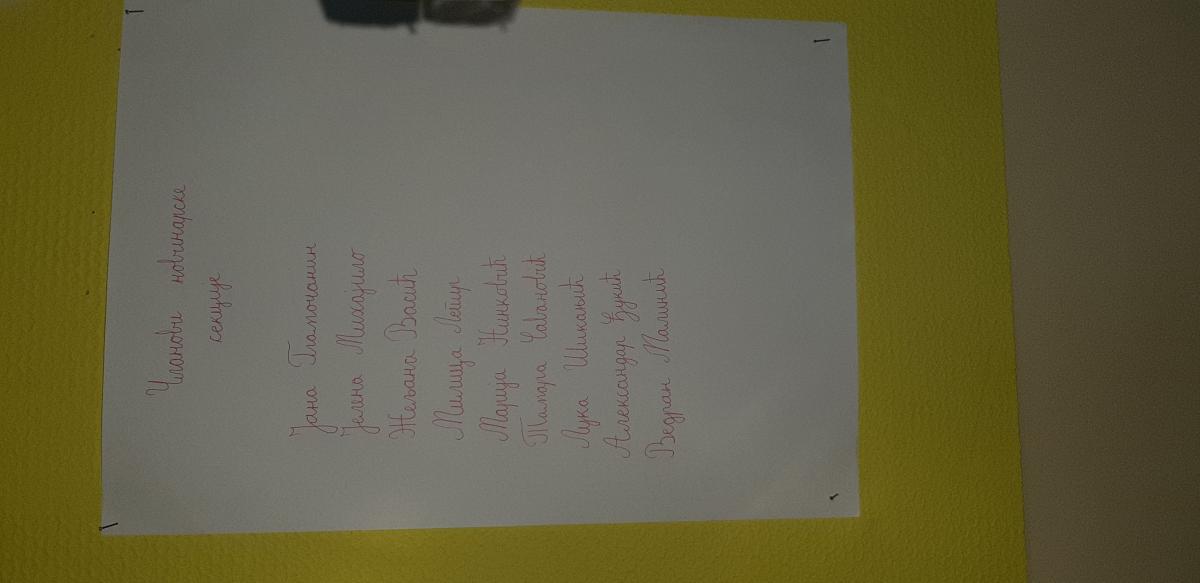 Чланови новинарске
секције
Јана Гламочанин
Јелена Михајило
Жељана Васић
Милица Лепир
Марија Нинковић
Тамара Савановић
Лука Шикањић
Александар Ђукић
Ведран Малинић